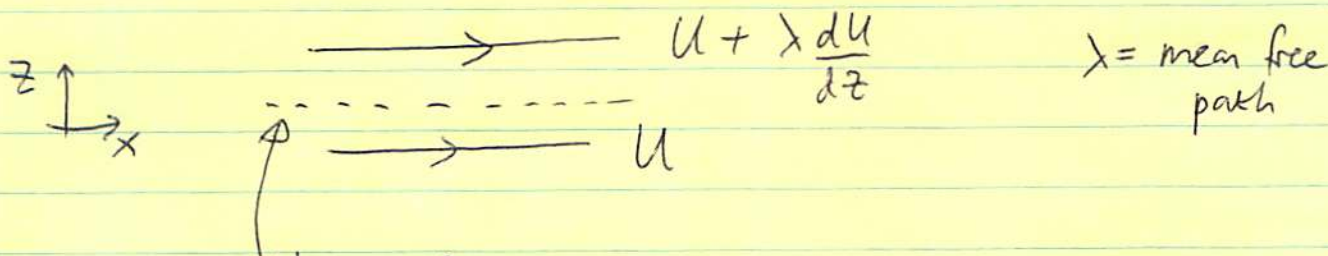 U + λ dU/dz
λ = mean free path
z
x
U